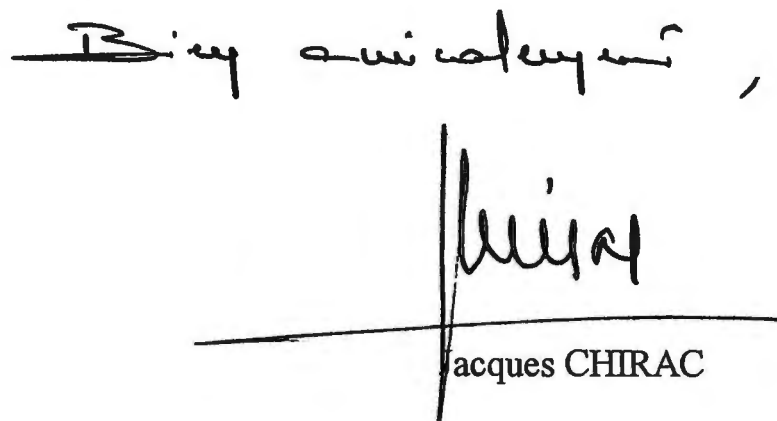 Bien amicalement,
Jacques CHIRAC